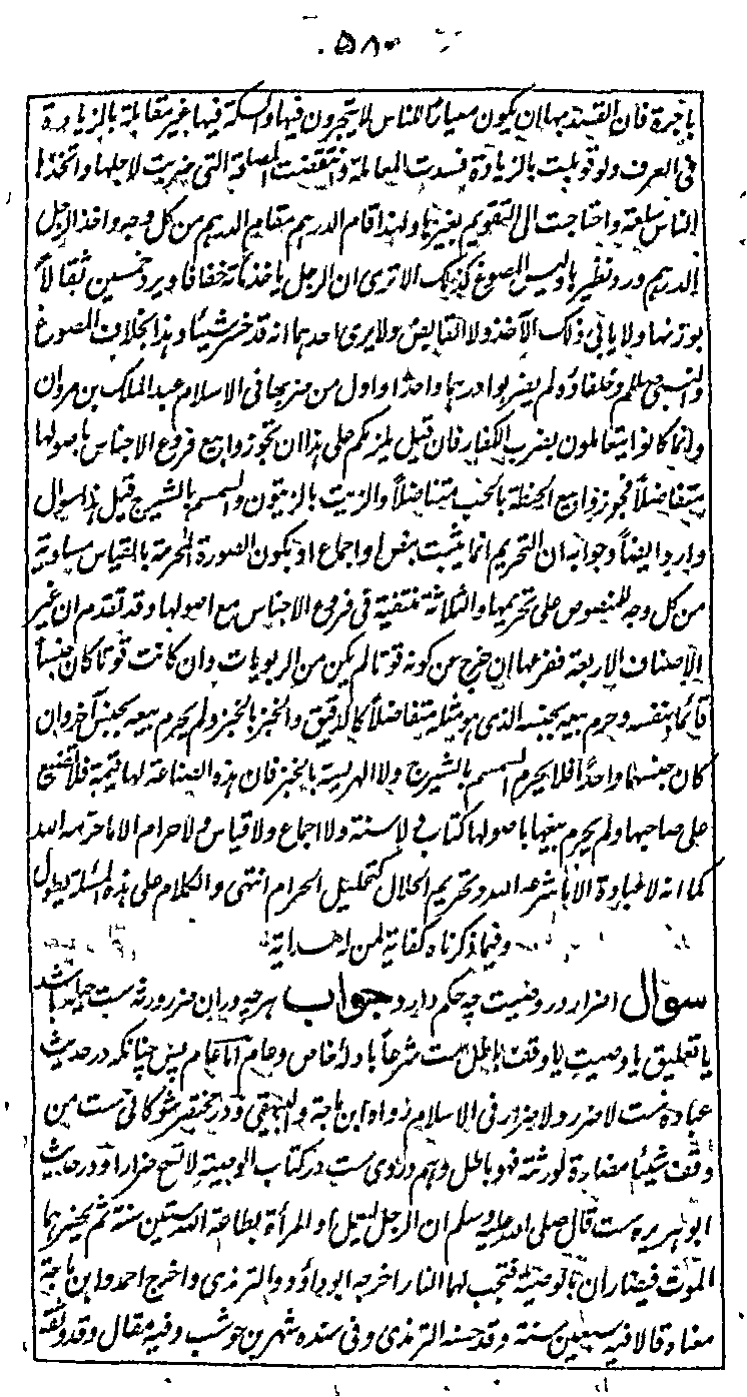 ۵۸۰
باجرة فان القصد بها ان يكون معيارا للناس لا يتجرون فيها والسكة فيها غير مقابلة بالزيادة
فى العرف ولو قوبلت بالزيادة فسدت المعاملة وانتقضت المصلحة التى ضربت لاجلها واتخذها
الناس سلعة واحتاجت الى التقويم بغيرها ولهذا قام الدرهم مقام الدرهم من كل وجه واخذ الرجل
الدرهم ورد نظيرها وليس المصوغ كذلك الا ترى ان الرجل ياخذ مأته خفافا ويرد خمسين ثقالا
بوزنها ولا يابى ذلك الآخذ ولا القابض ولا يرى احدهما انه قد خسر شيئا وهذا بخلاف المصوغ
والنبى صلعم وخلفاؤه لم يضربوا درهما واحدا واول من ضربها فى الاسلام عبدالملك بن مروان
وانما كانوا يتعاملون بضرب الكفار فان قيل يلزمكم على هذا ان تجوزوا بيع فروع الاجناس باصولها
متفاضلا فجوزوا بيع الحنطة بالخبز متفاضلاً والزيت بالزيتون والسمسم بالشيرج قيل هذا سوال
وارد ايضاً وجوابه ان التحريم انما يثبت بنص او اجماع او يكون الصورة المحرمة بالقياس مساوية
من كل وجه للمنصوص على تحريمها والثلاثة منتفية فى فروع الاجناس مع اصولها وقد تقدم ان غير
الاصناف الاربعة ففرعها ان خرج من كونه قوتا لم يكن من الربويات وان كانت قوتا كان جنسا
قائما بنفسه وحرم بيعه بجنسه الذى هو مثله متفاضلاً كالدقيق والخبز بالخبز ولم يحرم بيعه بجنس آخر وان
كان جنسهما واحدا فلا يحرم السمسم بالشيرج ولا الهريسة بالخبز فان هذه الصناعة لها قيمة فلا تضيع
على صاحبها ولم يحرم بيعها باصولها كتاب ولا سنة ولا اجماع ولا قياس ولا حرام الا ما حرمه الله
كما انه لا عبادة الا ما شرعه الله وتحريم الحلال كتحليل الحرام انتهى والكلام على هذه المسئلة يطول
وفيما ذكرناه كفاية لمن له هداية
سوال اضرار در وصيت چه حكم دارد جواب هرچه دران ضرر ورثه ست حيله باشد
يا تعليق يا وصيت يا وقف باطل ست شرعاً بادله خاص وعام اما عام پس چنانكه در حديث
عباده ست لا ضرر ولا ضرار فى الاسلام رواه ابن ماجة والبيهقى ودر مختصر شوكانى ست من
وقف شيئا مضارة لورثته فهو باطل وهم دروى ست در كتاب الوصية لا تصح ضرارا ودر حديث
ابوهريره ست قال صلى الله عليه وسلم ان الرجل ليعمل او المرأة بطاعة الله ستين سنة ثم يحضرهما
الموت فيضاران بالوصية فتجب لهما النار اخرجه ابوداؤد والترمذى واخرج احمد وابن ماجة
معناه قالا فيه سبعين سنة وقد حسنه الترمذى وفى سنده شهر بن حوشب وفيه مقال وقد وثقه